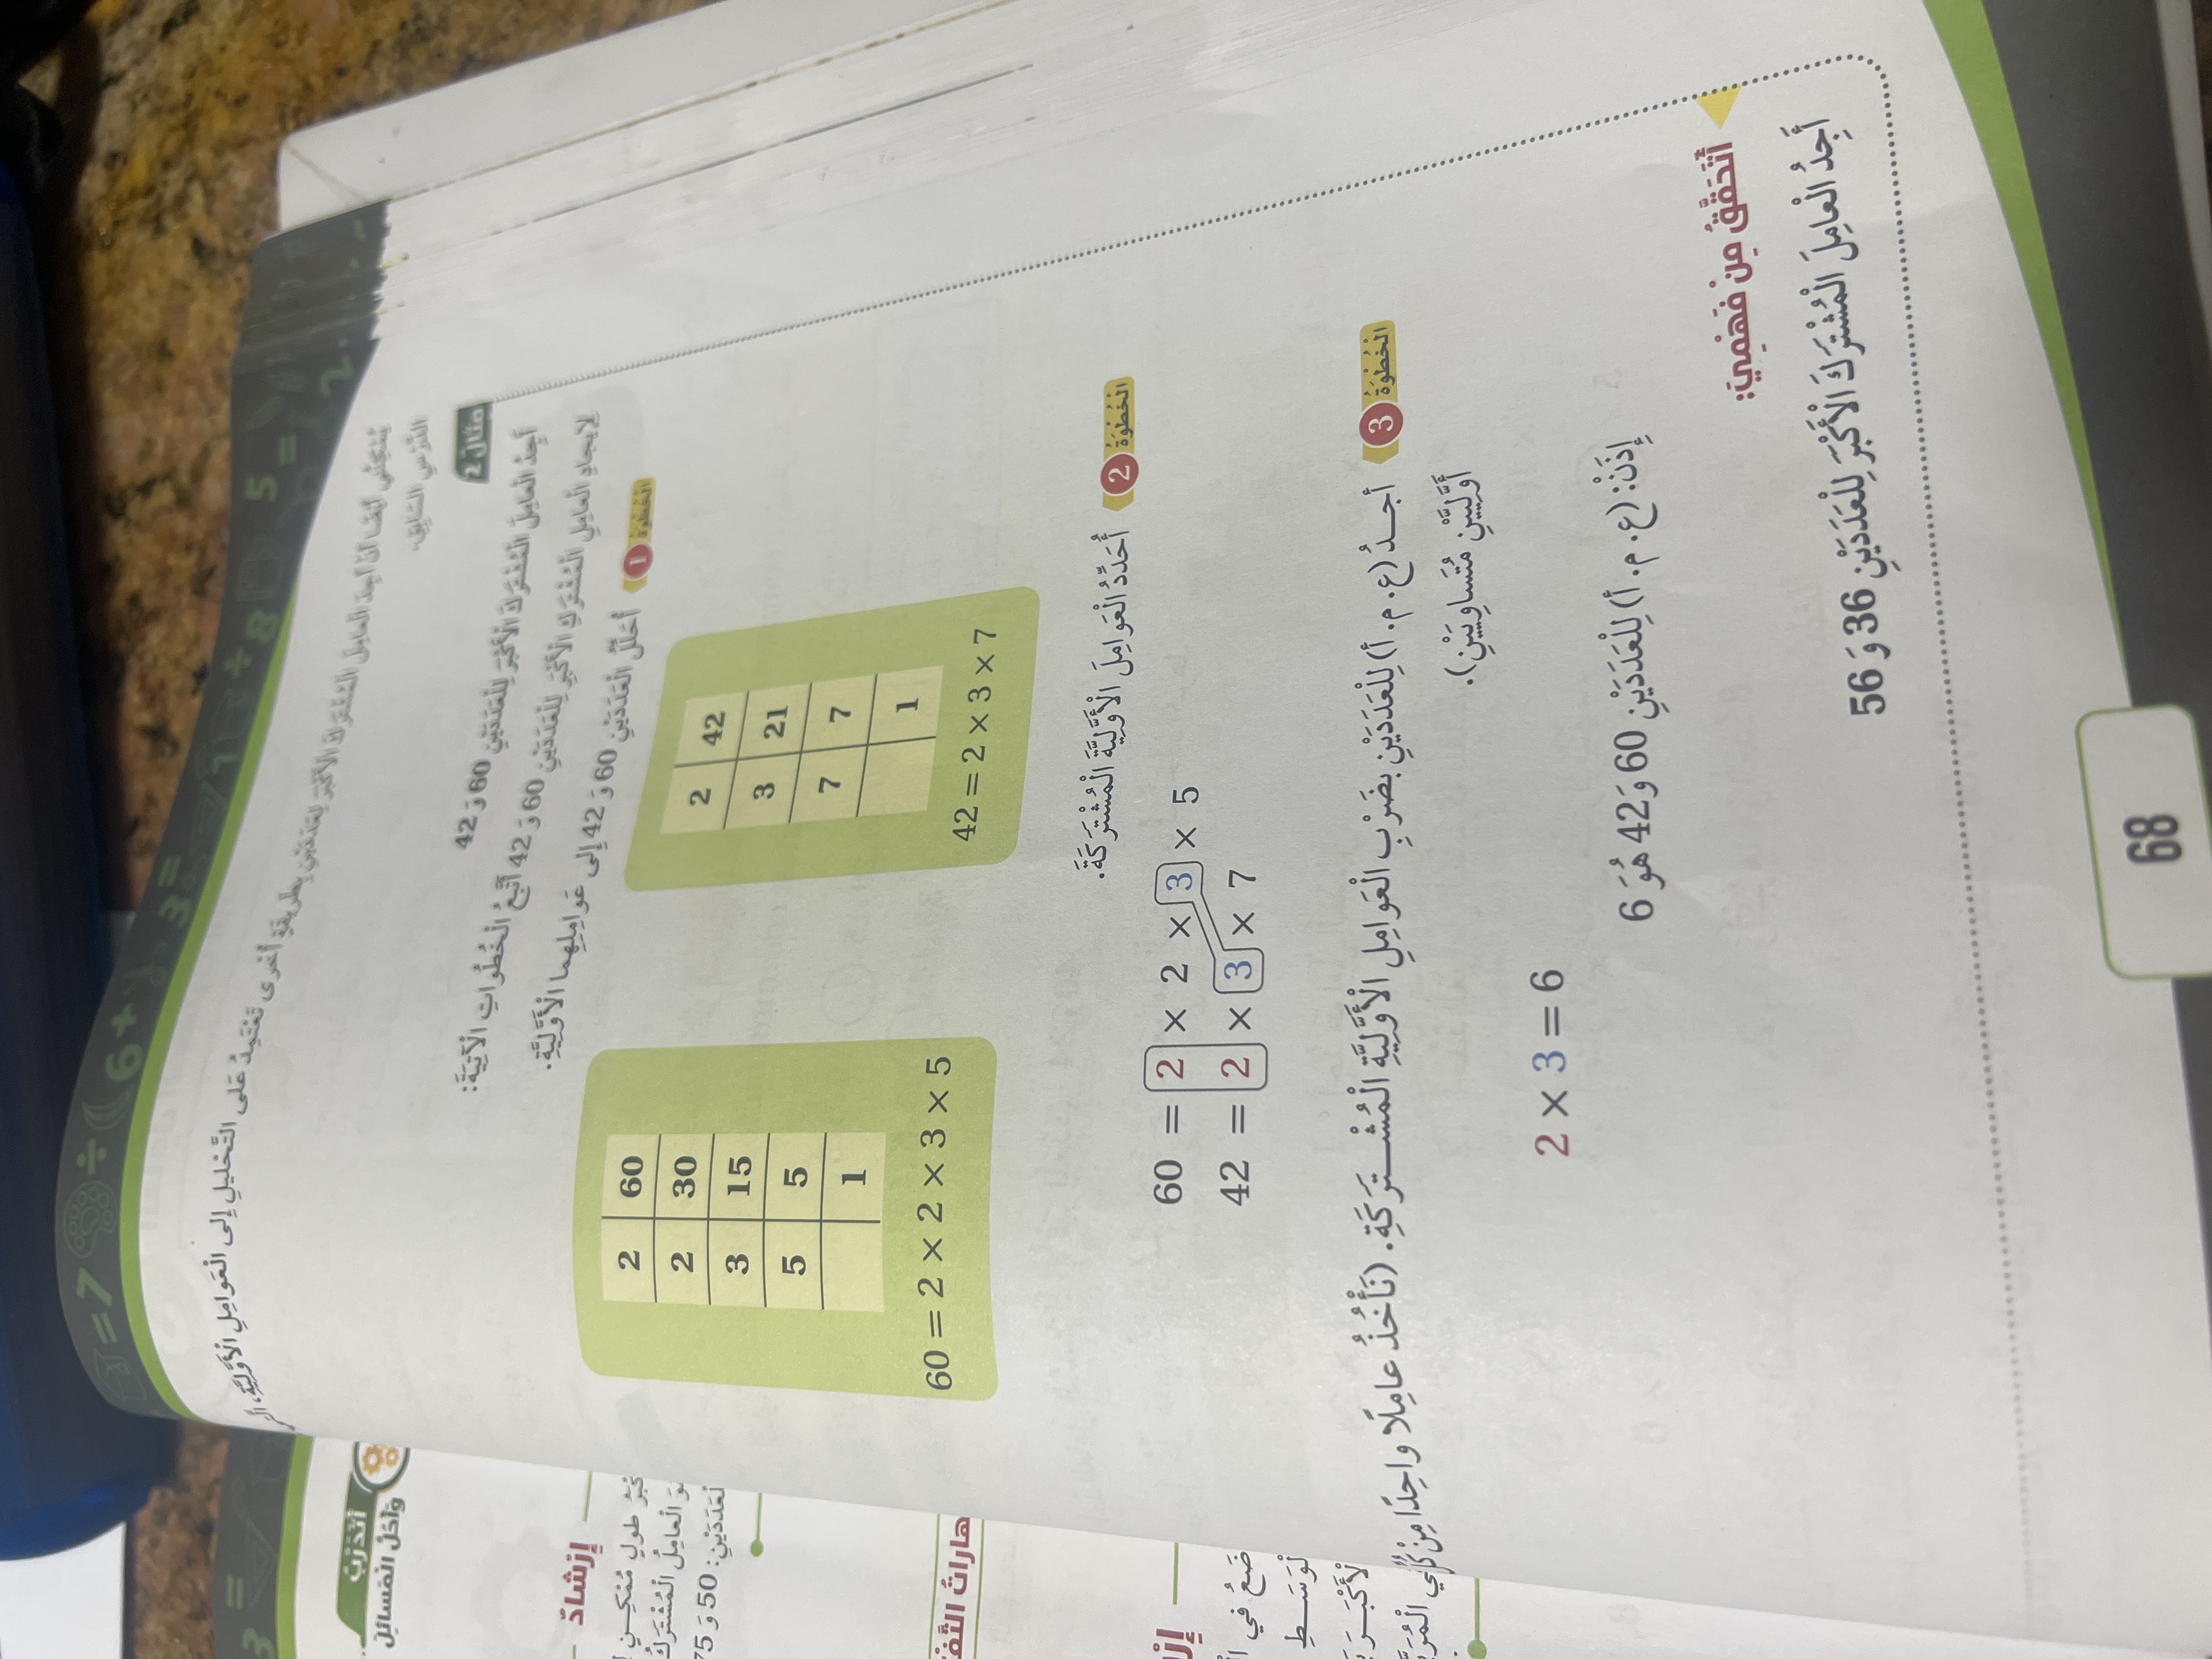 يُمْكِنُني أَيْضًا أَنْ أَجِدَ الْعامِلَ الْمُشْتَرَكَ الْأَكْبَرَ لِلْعَدَدَيْنِ بِطَريقَةٍ أُخْرى تَعْتَمِدُ عَلى التَّحْليلِ إِلى الْعَوامِلِ الْأَوَّلِيَّةِ،
الدَّرْسِ السّابِقِ.
مثال 2
أَجِدُ الْعامِلَ الْمُشْتَرَكَ الْأَكْبَرَ لِلْعَدَدَيْنِ 60 وَ 42
لِإيجادِ الْعامِلِ الْمُشْتَرَكِ الْأَكْبَرِ لِلْعَدَدَيْنِ 60 وَ 42 أَتَّبِعُ الْخُطُواتِ الْآتِيَةَ:
الْخُطْوَةُ 1 أُحَلِّلُ الْعَدَدَيْنِ 60 وَ 42 إِلى عَوامِلِهِما الْأَوَّلِيَّةِ.
2 60
2 30
3 15
5 5
1
60 = 2 × 2 × 3 × 5
2 42
3 21
7 7
1
42 = 2 × 3 × 7
الْخُطْوَةُ 2 أُحَدِّدُ الْعَوامِلَ الْأَوَّلِيَّةَ الْمُشْتَرَكَةَ.
60 = 2 × 2 × 3 × 5
42 = 2 × 3 × 7
الْخُطْوَةُ 3 أَجِدُ (ع. م. أ) لِلْعَدَدَيْنِ بِضَرْبِ الْعَوامِلِ الْأَوَّلِيَّةِ الْمُشْتَرَكَةِ. (نَأْخُذُ عامِلًا واحِدًا مِنْ كُلِّ
أَوَّلِيَّيْنِ مُتَساوِيَيْنِ).
2 × 3 = 6
إِذَنْ: (ع. م. أ) لِلْعَدَدَيْنِ 60 وَ 42 هُوَ 6
أَتَحَقَّقُ مِنْ فَهْمي:
أَجِدُ الْعامِلَ الْمُشْتَرَكَ الْأَكْبَرَ لِلْعَدَدَيْنِ 36 وَ 56
68
أَتَدَرَّبُ
وَأَحُلُّ الْمَسائِلَ
إِرْشادٌ
طولٍ مُمْكِنٍ
الْعامِلُ الْمُشْتَرَكُ
50 وَ 75